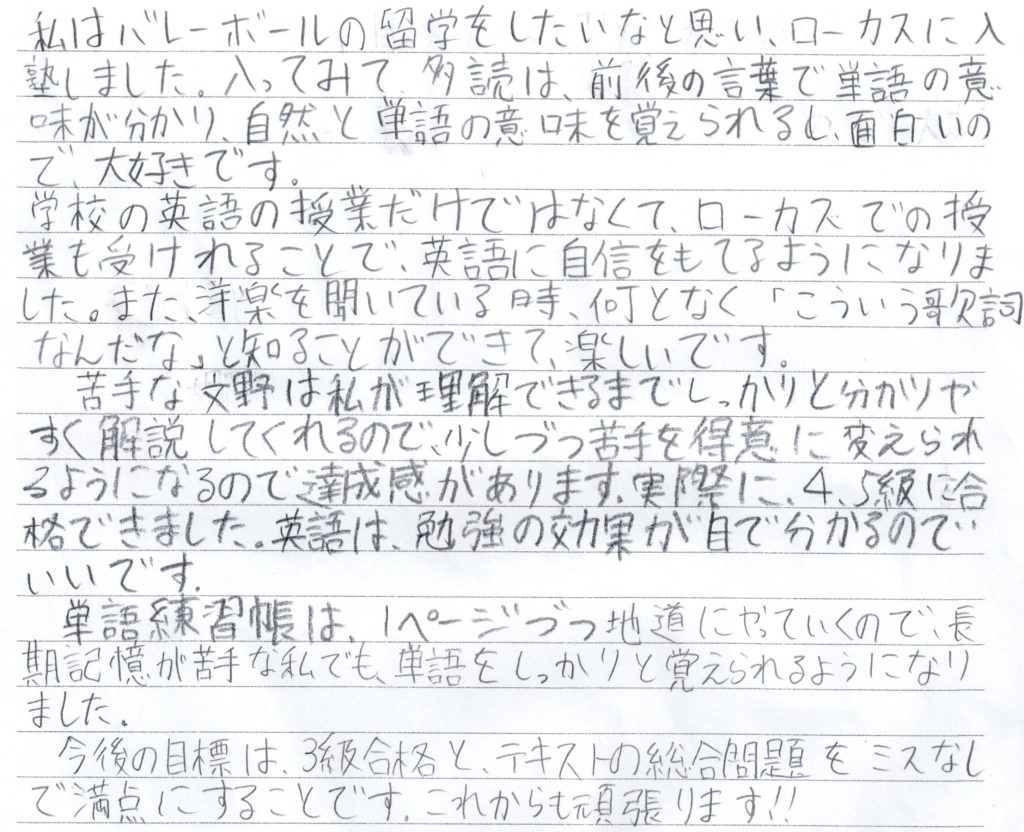 私はバレーボールの留学をしたいなと思い、ローカスに入
塾しました。入ってみて、多読は、前後の言葉で単語の意
味が分かり、自然と単語の意味を覚えられるし、面白いの
で、大好きです。
学校の英語の授業だけではなくて、ローカスでの授
業も受けれることで、英語に自信をもてるようになりま
した。また、洋楽を聞いている時、何となく「こういう歌詞
なんだな」と知ることができて、楽しいです。
苦手な文野は私が理解できるまでしっかりと分かりや
すく解説してくれるので、少しづつ苦手を得意に変えられ
るようになるので達成感があります。実際に、4、5級に合
格できました。英語は、勉強の効果が目で分かるので
いいです。
単語練習帳は、1ページづつ地道にやっていくので、長
期記憶が苦手な私でも、単語をしっかりと覚えられるようになり
ました。
今後の目標は、3級合格と、テキストの総合問題をミスなし
で満点にすることです。これからも頑張ります!!